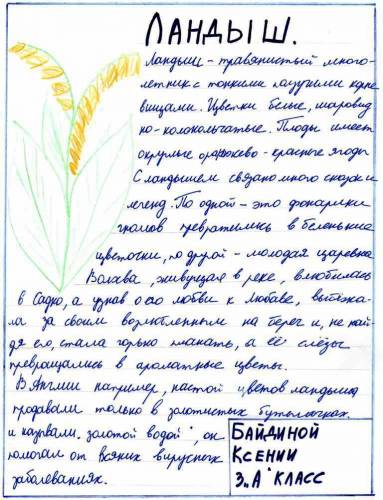 ЛАНДЫШ.
Ландыш - травянистый много-
летник с тонкими ползучими корне
вищами. Цветки белые, шаровид
но-колокольчатые. Плоды имеет
округлые оранжево-красные ягоды
С ландышем связано много сказок и
легенд. По одной - это фонарики
гномов превратились в беленькие
цветочки, по другой - молодая царевна
Волхва, живущая в реке, влюбилась
в Садко, а узнав о его любви к Любаве, выбежа-
ла за своим возлюбленным на берег и, не най-
дя его, стала горько плакать, а её слёзы
превращались в ароматные цветы.
В Англии например, настой цветов ландыша
продавали только в золотистых бутылочках.
и называли „золотой водой", он
помогал от всяких вирусных
заболеваниях.
БАЙДИНОЙ
КСЕНИИ
3„А" КЛАСС